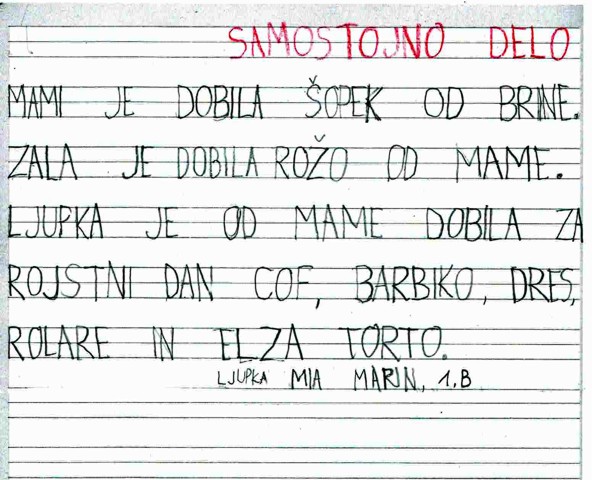 SAMOSTOJNO DELO
MAMI JE DOBILA ŠOPEK OD BRINE.
ZALA JE DOBILA ROŽO OD MAME.
LJUPKA JE OD MAME DOBILA ZA
ROJSTNI DAN COF, BARBIKO, DRES,
ROLARE IN ELZA TORTO.
LJUPKA MIA MARIN, 1.B